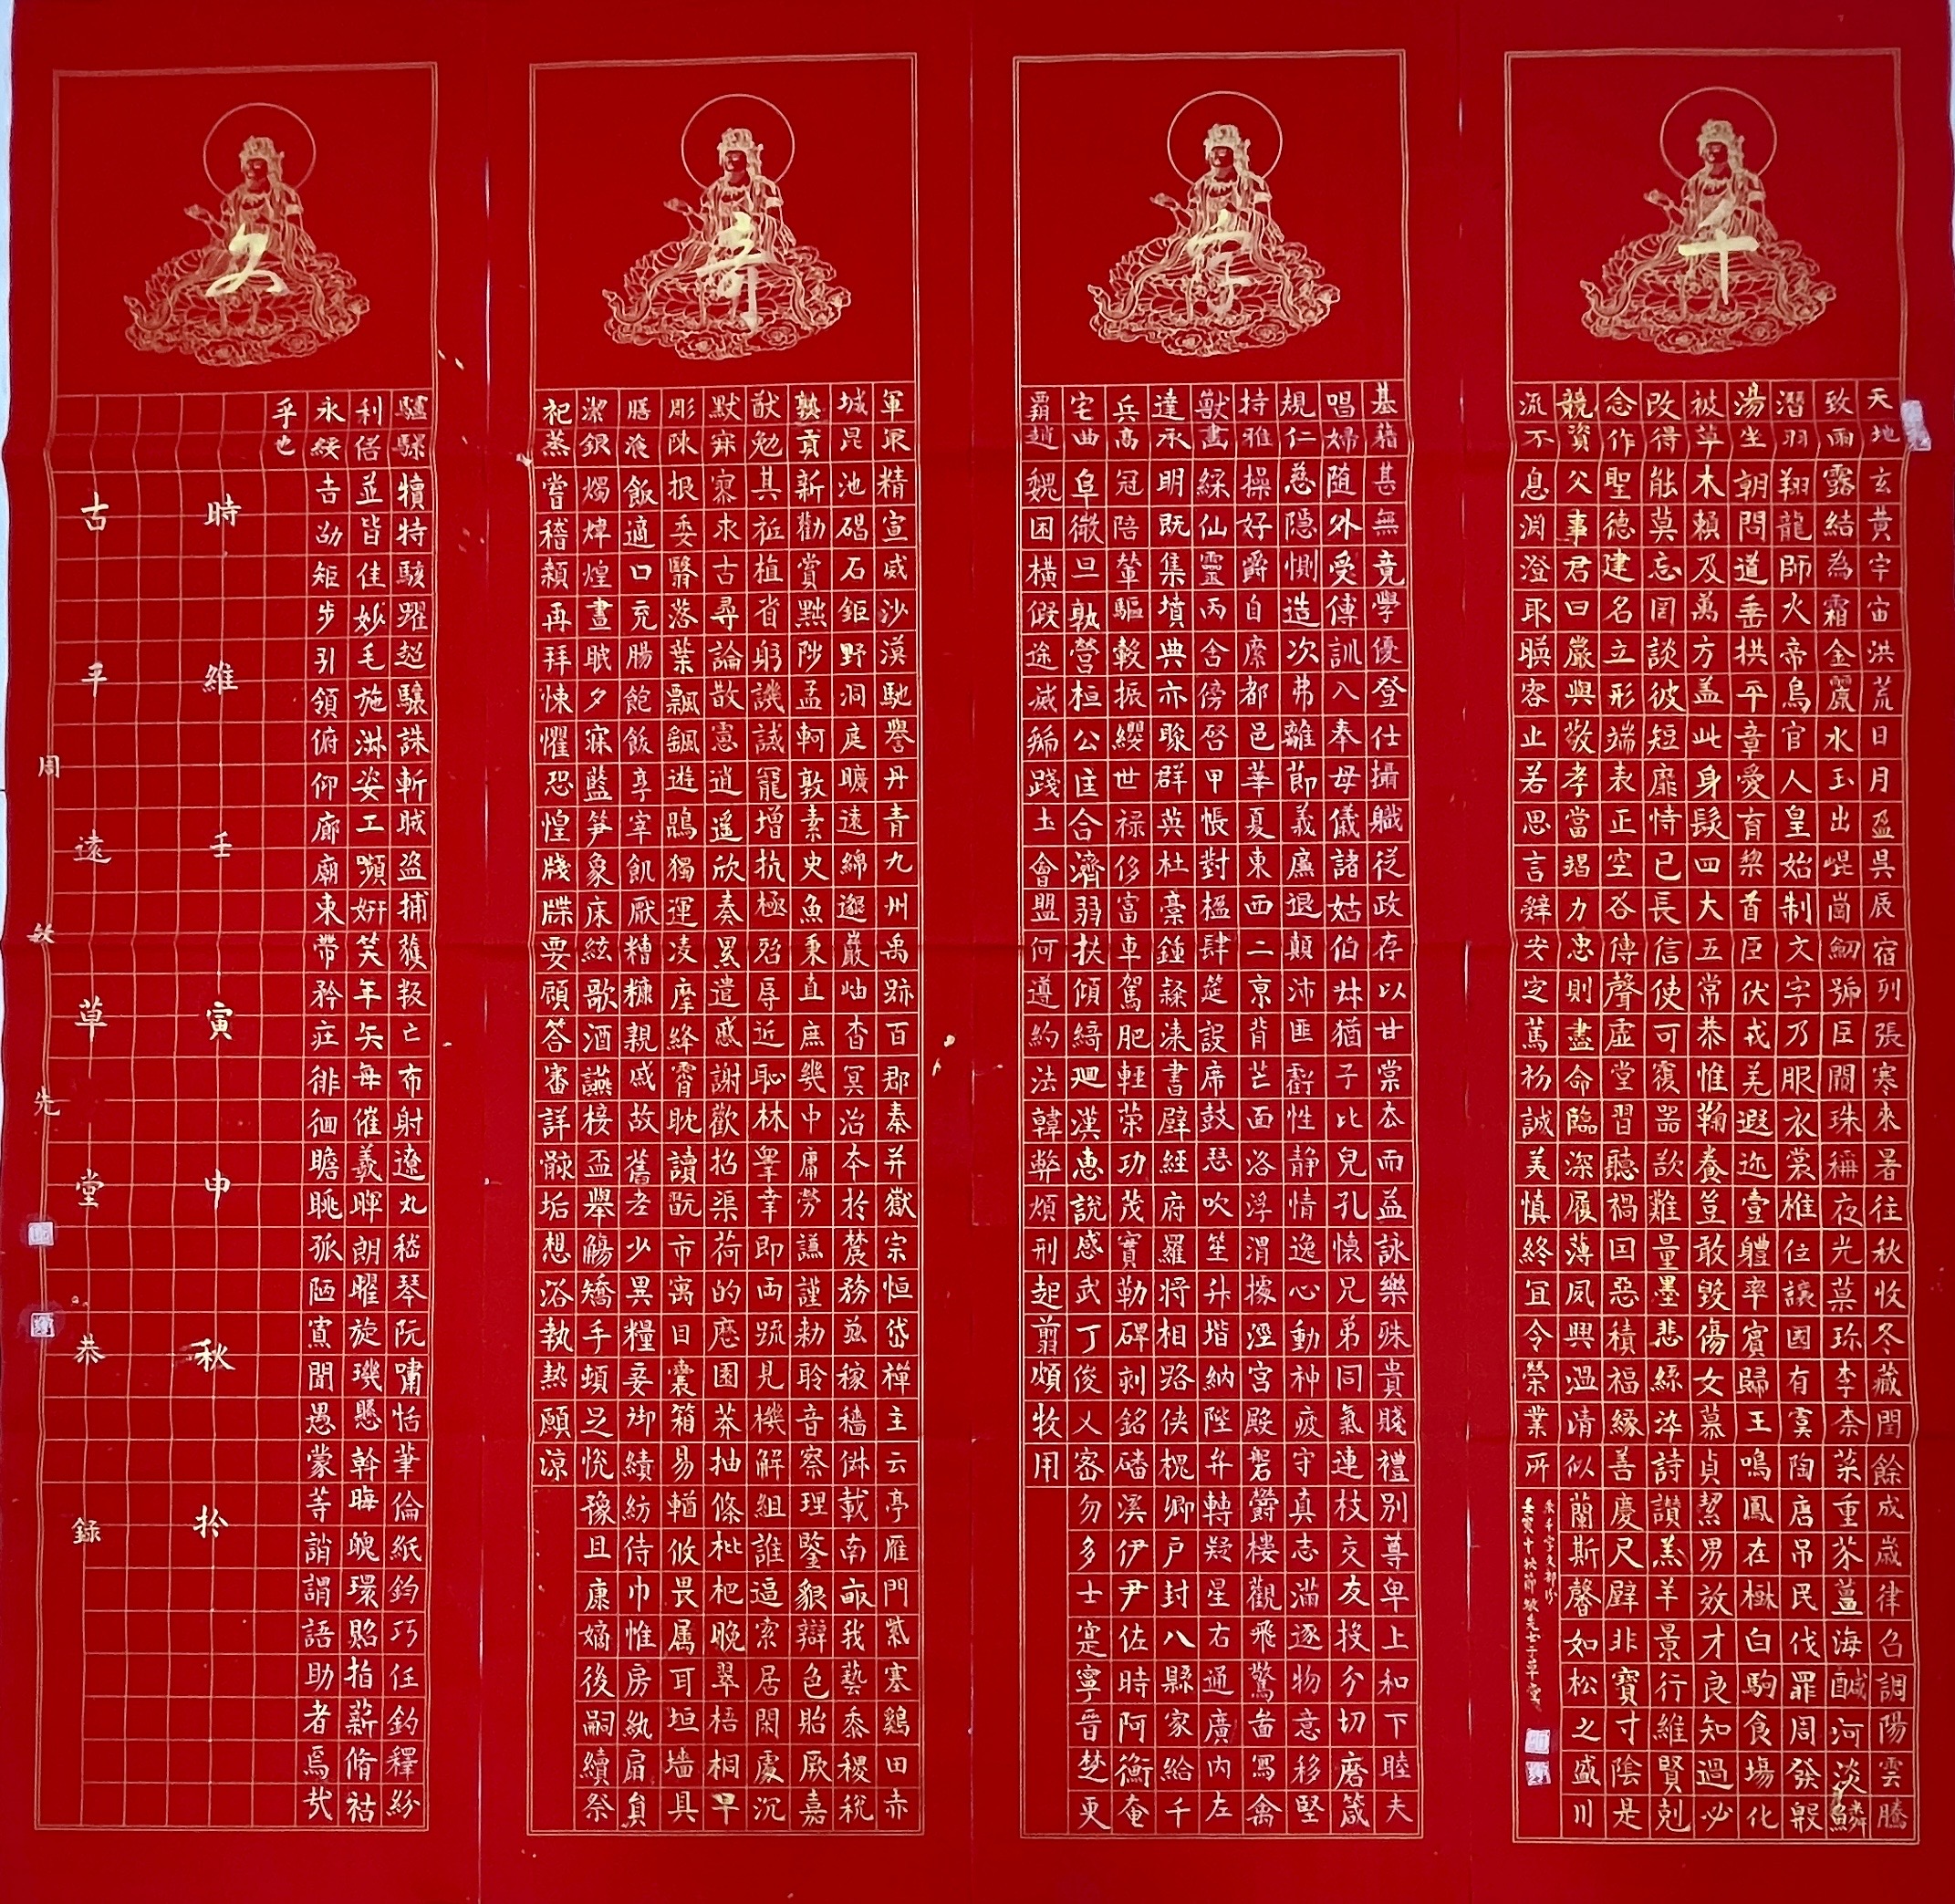 千
天地玄黄宇宙洪荒日月盈昃辰宿列張寒來暑往秋收冬藏閏餘成歲律呂調陽雲騰
致雨露結為霜金麗水玉出崐崗劒號巨闕珠稱夜光菓珍李柰菜重芥薑海鹹河淡鱗
潛羽翔龍師火帝鳥官人皇始制文字乃服衣裳推位讓國有虞陶唐吊民伐罪周發殷
湯坐朝問道垂拱平章愛育黎首臣伏戎羌遐迩壹軆率賓歸王鳴鳳在樹白駒食場化
被草木賴及萬方盖此身髮四大五常恭惟鞠養豈敢毀傷女慕貞絜男效才良知過必
改得能莫忘罔談彼短靡恃己長信使可覆器欲難量墨悲絲染詩讚羔羊景行維賢剋
念作聖德建名立形端表正空谷傳聲虛堂習聽禍因惡積福緣善慶尺璧非寶寸陰是
競資父事君曰嚴與敬孝當竭力忠則盡命臨深履薄夙興温清似蘭斯馨如松之盛川
流不息淵澄取暎容止若思言辭安定篤初誠美慎終宜令榮業所
字
基藉甚無竟學優登仕攝職從政存以甘棠去而益詠樂殊貴賤禮別尊卑上和下睦夫
唱婦随外受傅訓入奉母儀諸姑伯叔猶子比兒孔懷兄弟同氣連枝交友投分切磨箴
規仁慈隱惻造次弗離節義廉退顛沛匪虧性静情逸心動神疲守真志滿逐物意移堅
持雅操好爵自縻都邑華夏東西二京背芒面洛浮渭據涇宮殿磐欝樓觀飛驚啚寫禽
獸畫綵仙靈丙舍傍啓甲帳對楹肆筵設席鼓瑟吹笙升堦納陛弁轉疑星右通廣内左
達承明既集墳典亦聚群英杜稾鍾隸漆書壁經府羅將相路俠槐卿户封八縣家給千
兵高冠陪輦驅轂振纓世禄侈富車駕肥輕策功茂實勒碑刻銘磻溪伊尹佐時阿衡奄
宅曲阜微旦孰營桓公匡合濟弱扶傾綺迴漢惠說感武丁俊乂密勿多士寔寧晉楚更
霸趙魏困橫假途滅虢踐土會盟何遵約法韓弊煩刑起翦頗牧用
奇
軍最精宣威沙漠馳譽丹青九州禹跡百郡秦并嶽宗恒岱禪主云亭雁門紫塞鷄田赤
城昆池碣石鉅野洞庭曠遠綿邈巖岫杳冥治本於農務兹稼穡俶載南畝我藝黍稷稅
熟貢新勸賞黜陟孟軻敦素史魚秉直庶幾中庸勞謙謹勑聆音察理鑒貌辯色貽厥嘉
猷勉其祗植省躬譏誡寵增抗極殆辱近恥林皋幸即兩疏見機解組誰逼索居閑處沉
默寂寥求古尋論散慮逍遥欣奏累遣慼謝歡招渠荷的歷園莽抽條枇杷晚翠梧桐早
彫陳根委翳落葉飄颻遊鵾獨運凌摩絳霄耽讀翫市寓目囊箱易輶攸畏属耳垣墻具
膳飡飯適口充腸飽飫享宰飢厭糟糠親戚故舊老少異糧妾御績紡侍巾帷房紈扇員
潔銀燭煒煌晝眠夕寐藍笋象床絃歌酒讌接盃舉觴矯手頓足悅豫且康嫡後嗣續祭
祀蒸嘗稽顙再拜悚懼恐惶牋牒要顧答審詳骸垢想浴執熱願涼
文
驢騾犢特駭躍超驤誅斬賊盜捕獲叛亡布射遼丸嵇琴阮嘯恬筆倫紙鈞巧任釣釋紛
利俗並皆佳妙毛施淑姿工嚬妍笑年矢每催羲暉朗曜旋璣懸斡晦魄環照指薪脩祜
永綏吉劭矩步引領俯仰廊廟束帶矜莊徘徊瞻眺孤陋寡聞愚蒙等誚謂語助者焉哉
乎也
時維壬寅申秋於
古平遠草堂恭録
周敏先